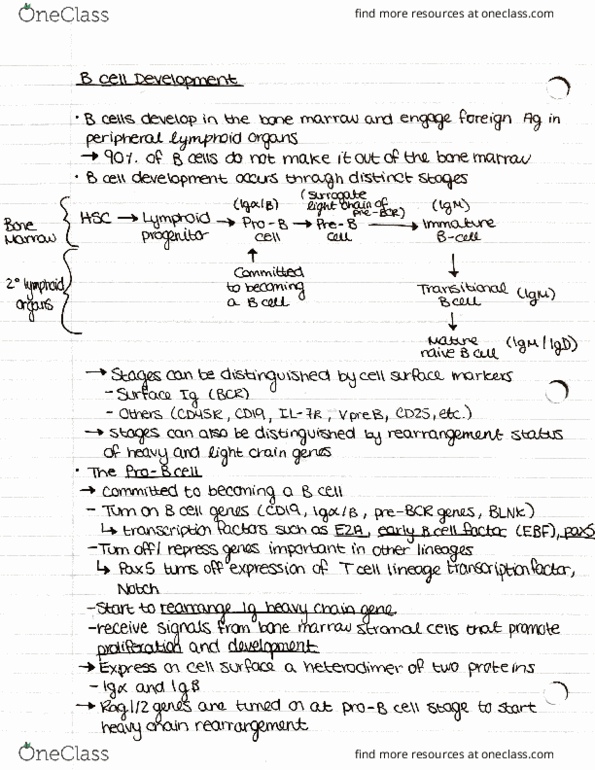 OneClass
find more resources at oneclass.com
B cell Development
· B cells develop in the bone marrow and engage foreign Ag in
peripheral lymphoid organs
→ 90% of B cells do not make it out of the bone marrow
· B cell development occurs through distinct stages
Bone Marrow
(Igα/B)
(surrogate light chain of pre-BCR)
(IgM)
HSC → Lymphoid progenitor → Pro-B cell → Pre-B cell → Immature B-cell
↑
↓
2° lymphoid organs
Committed to becoming a B cell
Transitional B cell (IgM)
↓
Mature naive B cell (IgM/IgD)
→ Stages can be distinguished by cell surface markers
- Surface Ig (BCR)
- Others (CD45R, CD19, IL-7R, VpreB, CD25, etc.)
→ stages can also be distinguished by rearrangement status
of heavy and light chain genes
· The Pro-B cell
→ committed to becoming a B cell
- Turn on B cell genes (CD19, Igα/B, pre-BCR genes, BLNK)
↳ transcription factors such as E2A, early B cell factor (EBF), pax5
- Turn off/repress genes important in other lineages
↳ Pax5 turns off expression of T cell lineage transcription factor,
Notch
- Start to rearrange Ig heavy chain gene
- receive signals from bone marrow stromal cells that promote
proliferation and development
→ Express on cell surface a heterodimer of two proteins
- Igα and IgB
→ Rag1/2 genes are turned on at pro-B cell stage to start
heavy chain rearrangement
OneClass
find more resources at oneclass.com